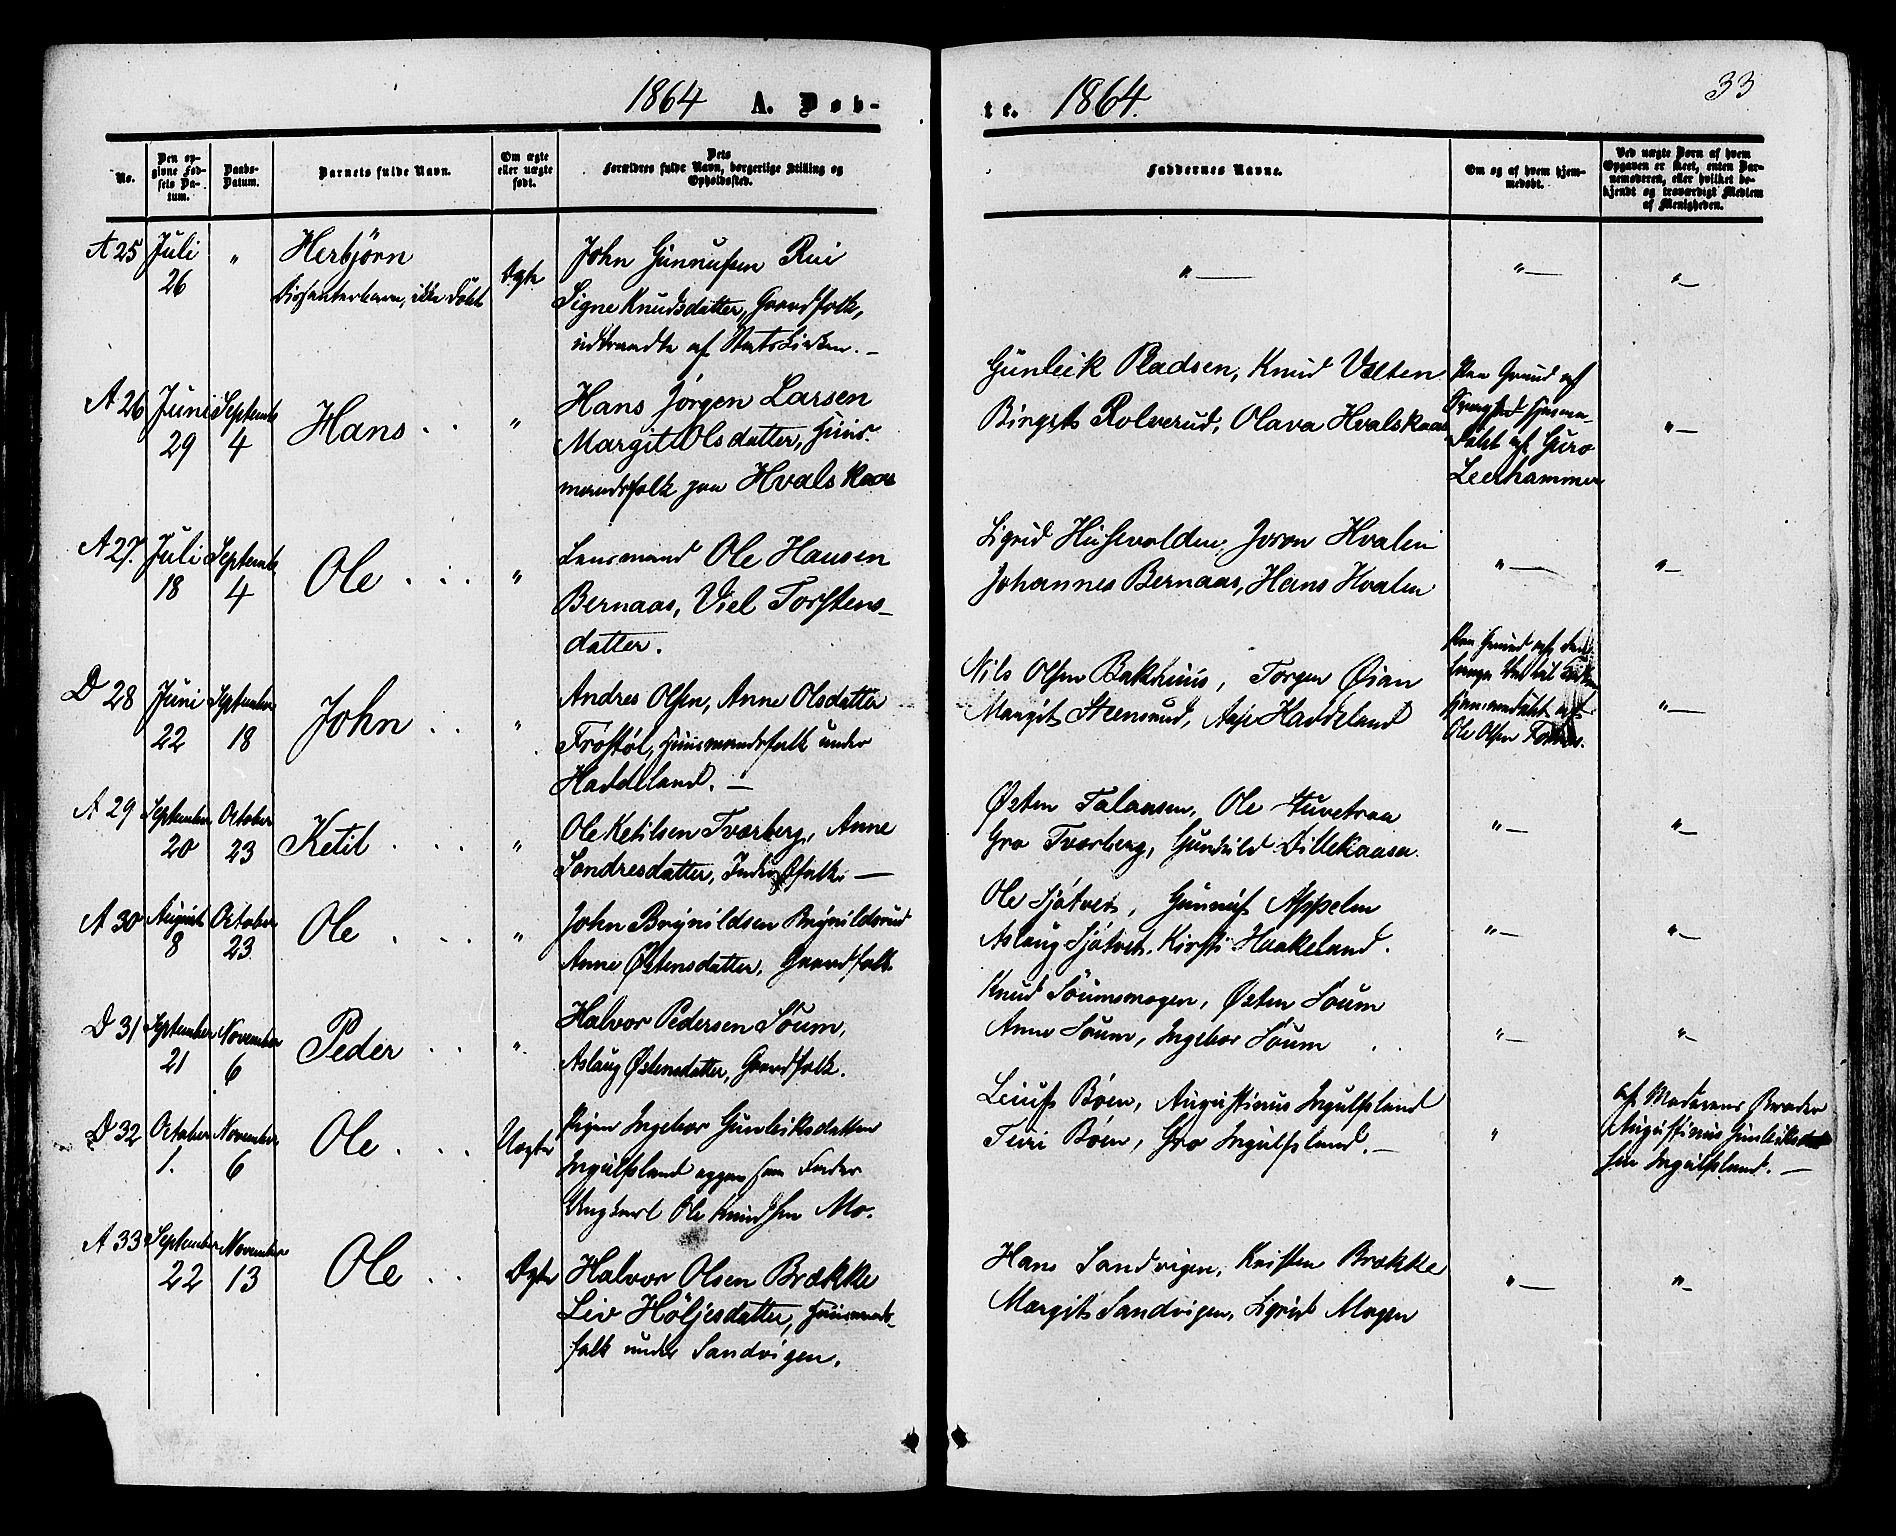 1864 A. Døb-
No.
Den op-
givne Fød-
sels Da-
tum.
Daabs-
Datum.
Barnets fulde Navn.
Om ægte
eller uægte
født.
Dets
Forældres fulde Navn, borgerlige Stilling og
Opholdssted.
A 25 Juli 26 " Herbjørn
Dissenterbarn, ikke døbt
Ægte
John Gunnufsen Rui
Signe Knudsdatter, Gaardfolk,
udtraadte af Statskirken. -
A 26 Juni 29 Septemb 4 Hans . . "
Hans Jørgen Larsen
Margit Olsdatter, Huus-
mandsfolk paa Hvalskaas
A 27. Juli 18 Septemb. 4 Ole . . . "
Lensmand Ole Hansen
Bernaas, Viel Torstens-
datter.
D 28 Juni 22 September 18 John . . "
Andres Olsen, Anne Olsdatter
Frøstøl, Huusmandsfolk under
Haddeland. -
A 29 September 20 October 23 Ketil . . . "
Ole Ketilsen Tværberg, Anne
Sondresdatter, Inderstfolk -
A 30 August 8 October 23. Ole . . . "
John Brynildsen Brynildsrud
Anne Østensdatter, Gaardfolk
D 31 September 21 November 6 Peder . . "
Halvor Pedersen Söum,
Aslaug Østensdatter, Gaardfolk.
D 32 October 1. November 6 Ole . . . Uægte
Pigen Ingebor Gunleiksdatter
Ingulfsland opgav som Fader
Ungkarl Ole Knudsen Mo.
A 33 September 22 November 13 Ole . . Ægte
Halvor Olsen Brække
Liv Höljesdatter, Huusmands-
folk under Sandvigen.
te. 1864.
33
Faddernes Navne.
Om og af hvem hjem-
medøbt.
Ved uægte Børn af hvem
Opgaven er skeet, enten Bar-
nemoderen, eller hvilket be-
kjendt og troværdigt Medlem
af Menigheden.
" - " - " -
Gunleik Pladsen, Knud Vælten
Bingit Rolverud, Olava Hvalskaas
Paa Grund af
Svaghed hjemme-
døbt af Guro
Leerhammer
" -
Sigrid Husevolden, Joron Hvalen
Johannes Bernaas, Hans Hvalen
" - " -
Nils Olsen Bakhuus, Torgen Øian
Margit Steensrud, Aase Haddeland
Paa Grund af den
lange Vei til Kirken
hjemmedøbt af
Ole Olsen
" -
Østen Talaasen, Ole Stuvetraa
Gro Tværberg, Gunhild Dillekaasa.
" - " -
Ole Sjøtvet, Gunnuf Appelen
Aslaug Sjøtvet, Kirsti Haakeland.
" - " -
Knud Söumsmogen, Østen Söum
Anne Söum, Ingebor Söum
" - " -
Leiuf Bøen, Augustinus Ingulfsland
Turi Bøen, Gro Ingulfsland. -
"
af Moderens Broder
Augustinus Gunleik-
sen Ingulfsland. -
Hans Sandvigen, Kristen Brække
Margit Sandvigen, Sigrid Mogen
" - " -